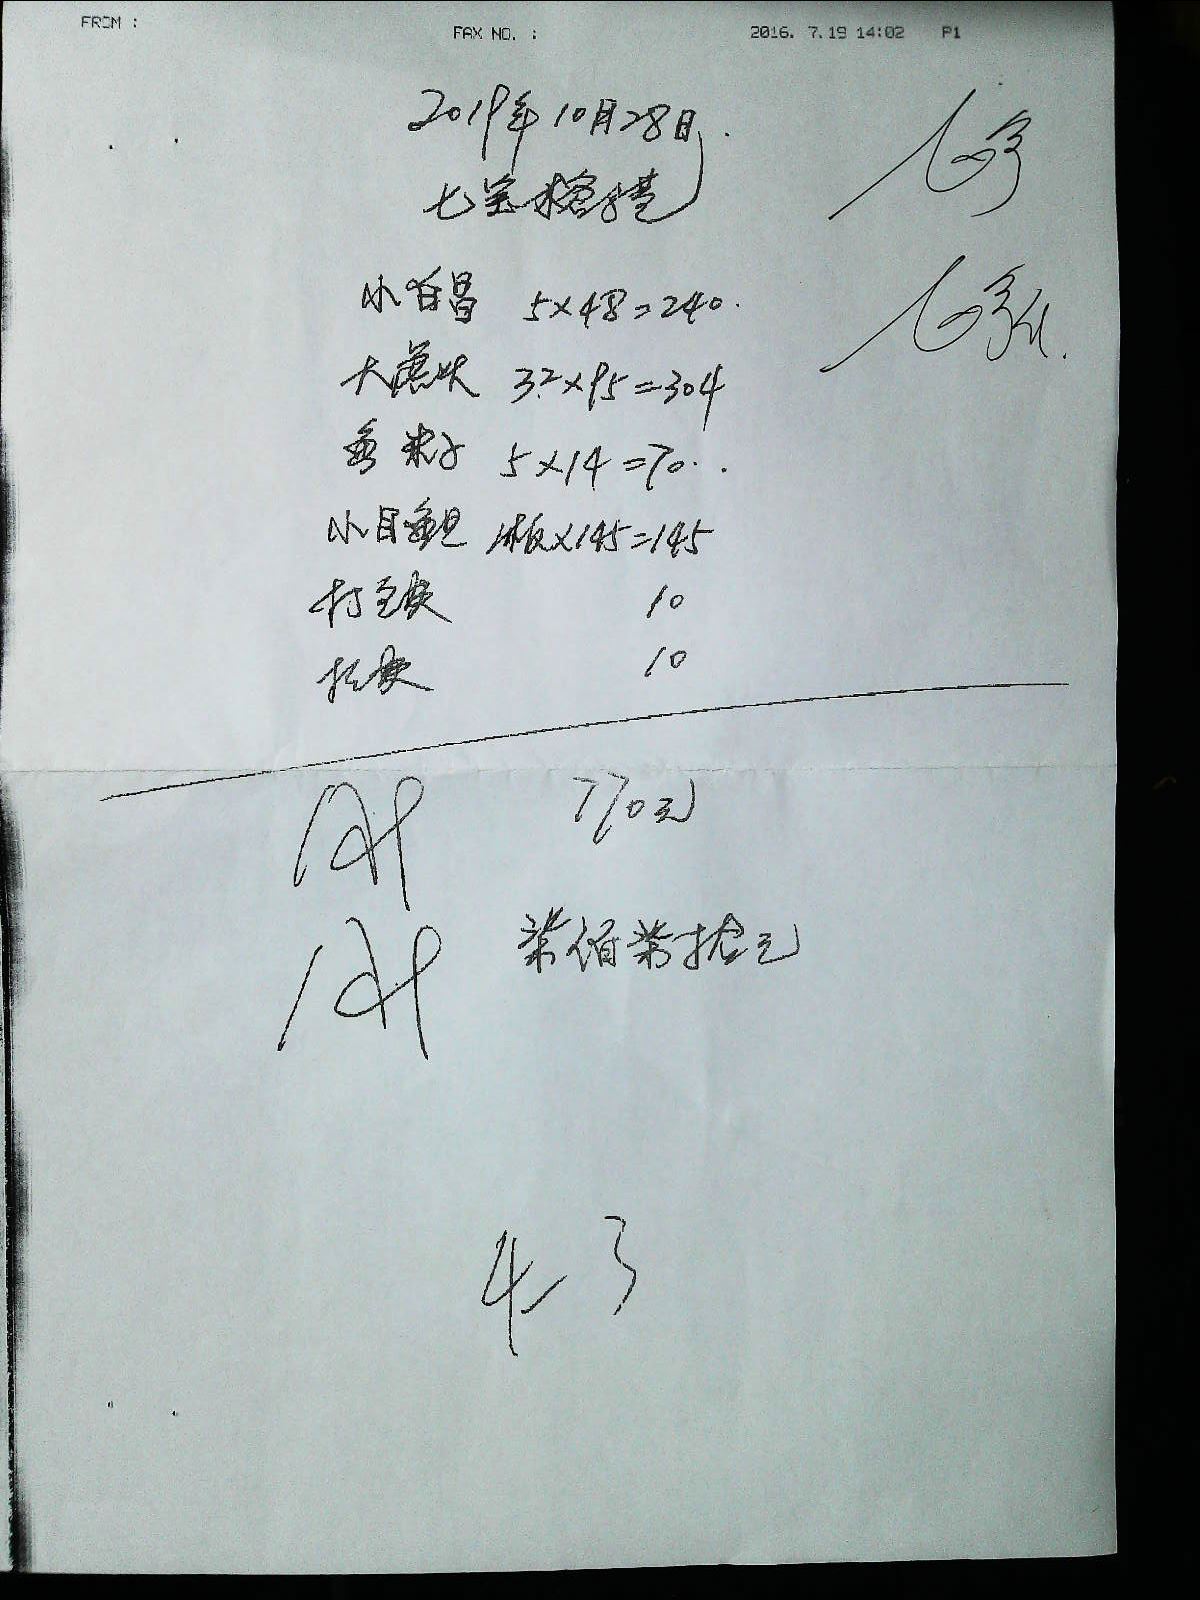 FROM :
FAX NO. :
2016. 7.19 14:02 P1
2019年10月28日
七宝
小白昌 5×48=240.
大 32×95=304
鱼米子 5×14=70..
小目鱼旦 1板×145=145
打包费 10
10
770元
柒佰柒拾元
43